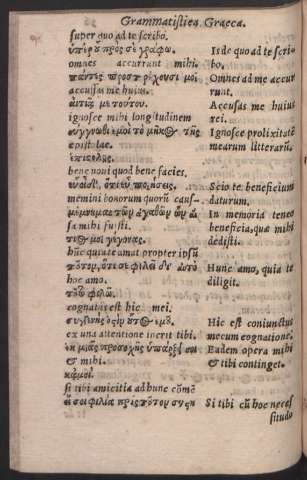 Grammatistices Graeca.
super quo ad te scribo.
ὑπὲρ οὗ πρός σε γράφω.
omnes accurrunt mihi.
πάντες προστρέχουσί μοι
accusas me huius.
αἰτιᾷ με τούτου.
ignosce mihi longitudinem
συγγνωθι ἐμοὶ τὸ μῆκος τῆς
epistolae.
ἐπιστολῆς.
bene noui quod bene facies.
memini bonorum quorũ cau-
μέμνημαι τῶν ἀγαθῶν ὧν
sa mihi fuisti.
μοι γέγονας.
hũc quia te amat propter ipsũ
τοῦτον, ὅτι σὲ φιλεῖ δι' αὐτὸ
hoc amo.
φιλῶ.
cognatus est hic mei.
συγγενής ἐστιν οὗτος ἐμοῦ.
ex una attentione inerit tibi.
ἐκ μιᾶς προσοχῆς ὑπάρξει σοι
& mihi.
κἀμοί.
si tibi amicitia ad hunc cõmẽ
εἴ σοι φιλία πρὸς τοῦτον
Is de quo ad te scri-
bo.
Omnes ad me accur
runt.
Accusas me huius
rei.
Ignosce prolixitatẽ
mearum litterarũ.
Scio te beneficium
daturum.
In memoria teneo
beneficia, quæ mihi
dedisti.
Hunc amo, quia te
diligit.
Hic est coniunctus
mecum cognatione.
Eadem opera mihi
& tibi continget.
Si tibi cũ hoc neces
situdo